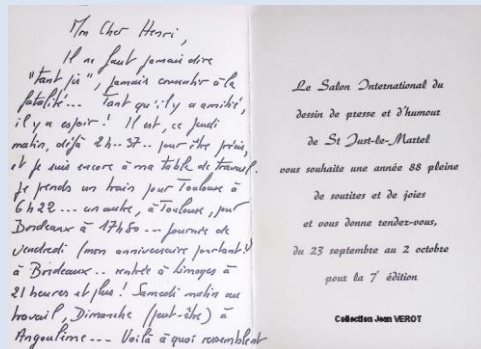 Mon Cher Henri,
Il ne faut jamais dire
"tant pis", jamais consentir à la
fatalité... Tant qu'il y a amitié,
il y a espoir ! Il est, ce jeudi
matin, déjà 2h-37-- pour être précis,
et je suis encore à ma table de travail.
Je prends un train pour Toulouse à
6h22 --- un autre, à Toulouse, pour
Bordeaux à 17h50 --- journée de
vendredi (mon anniversaire pourtant !)
à Bordeaux .. rentrée à Limoges à
21 heures et plus ! Samedi matin au
travail, Dimanche (peut-être) à
Angoulême --- Voilà à quoi ressemblent
Le Salon International du
dessin de presse et d'humour
de St Just-le-Martel
vous souhaite une année 88 pleine
de sourires et de joies
et vous donne rendez-vous,
du 23 septembre au 2 octobre
pour la 7e édition
Collection Jean VEROT